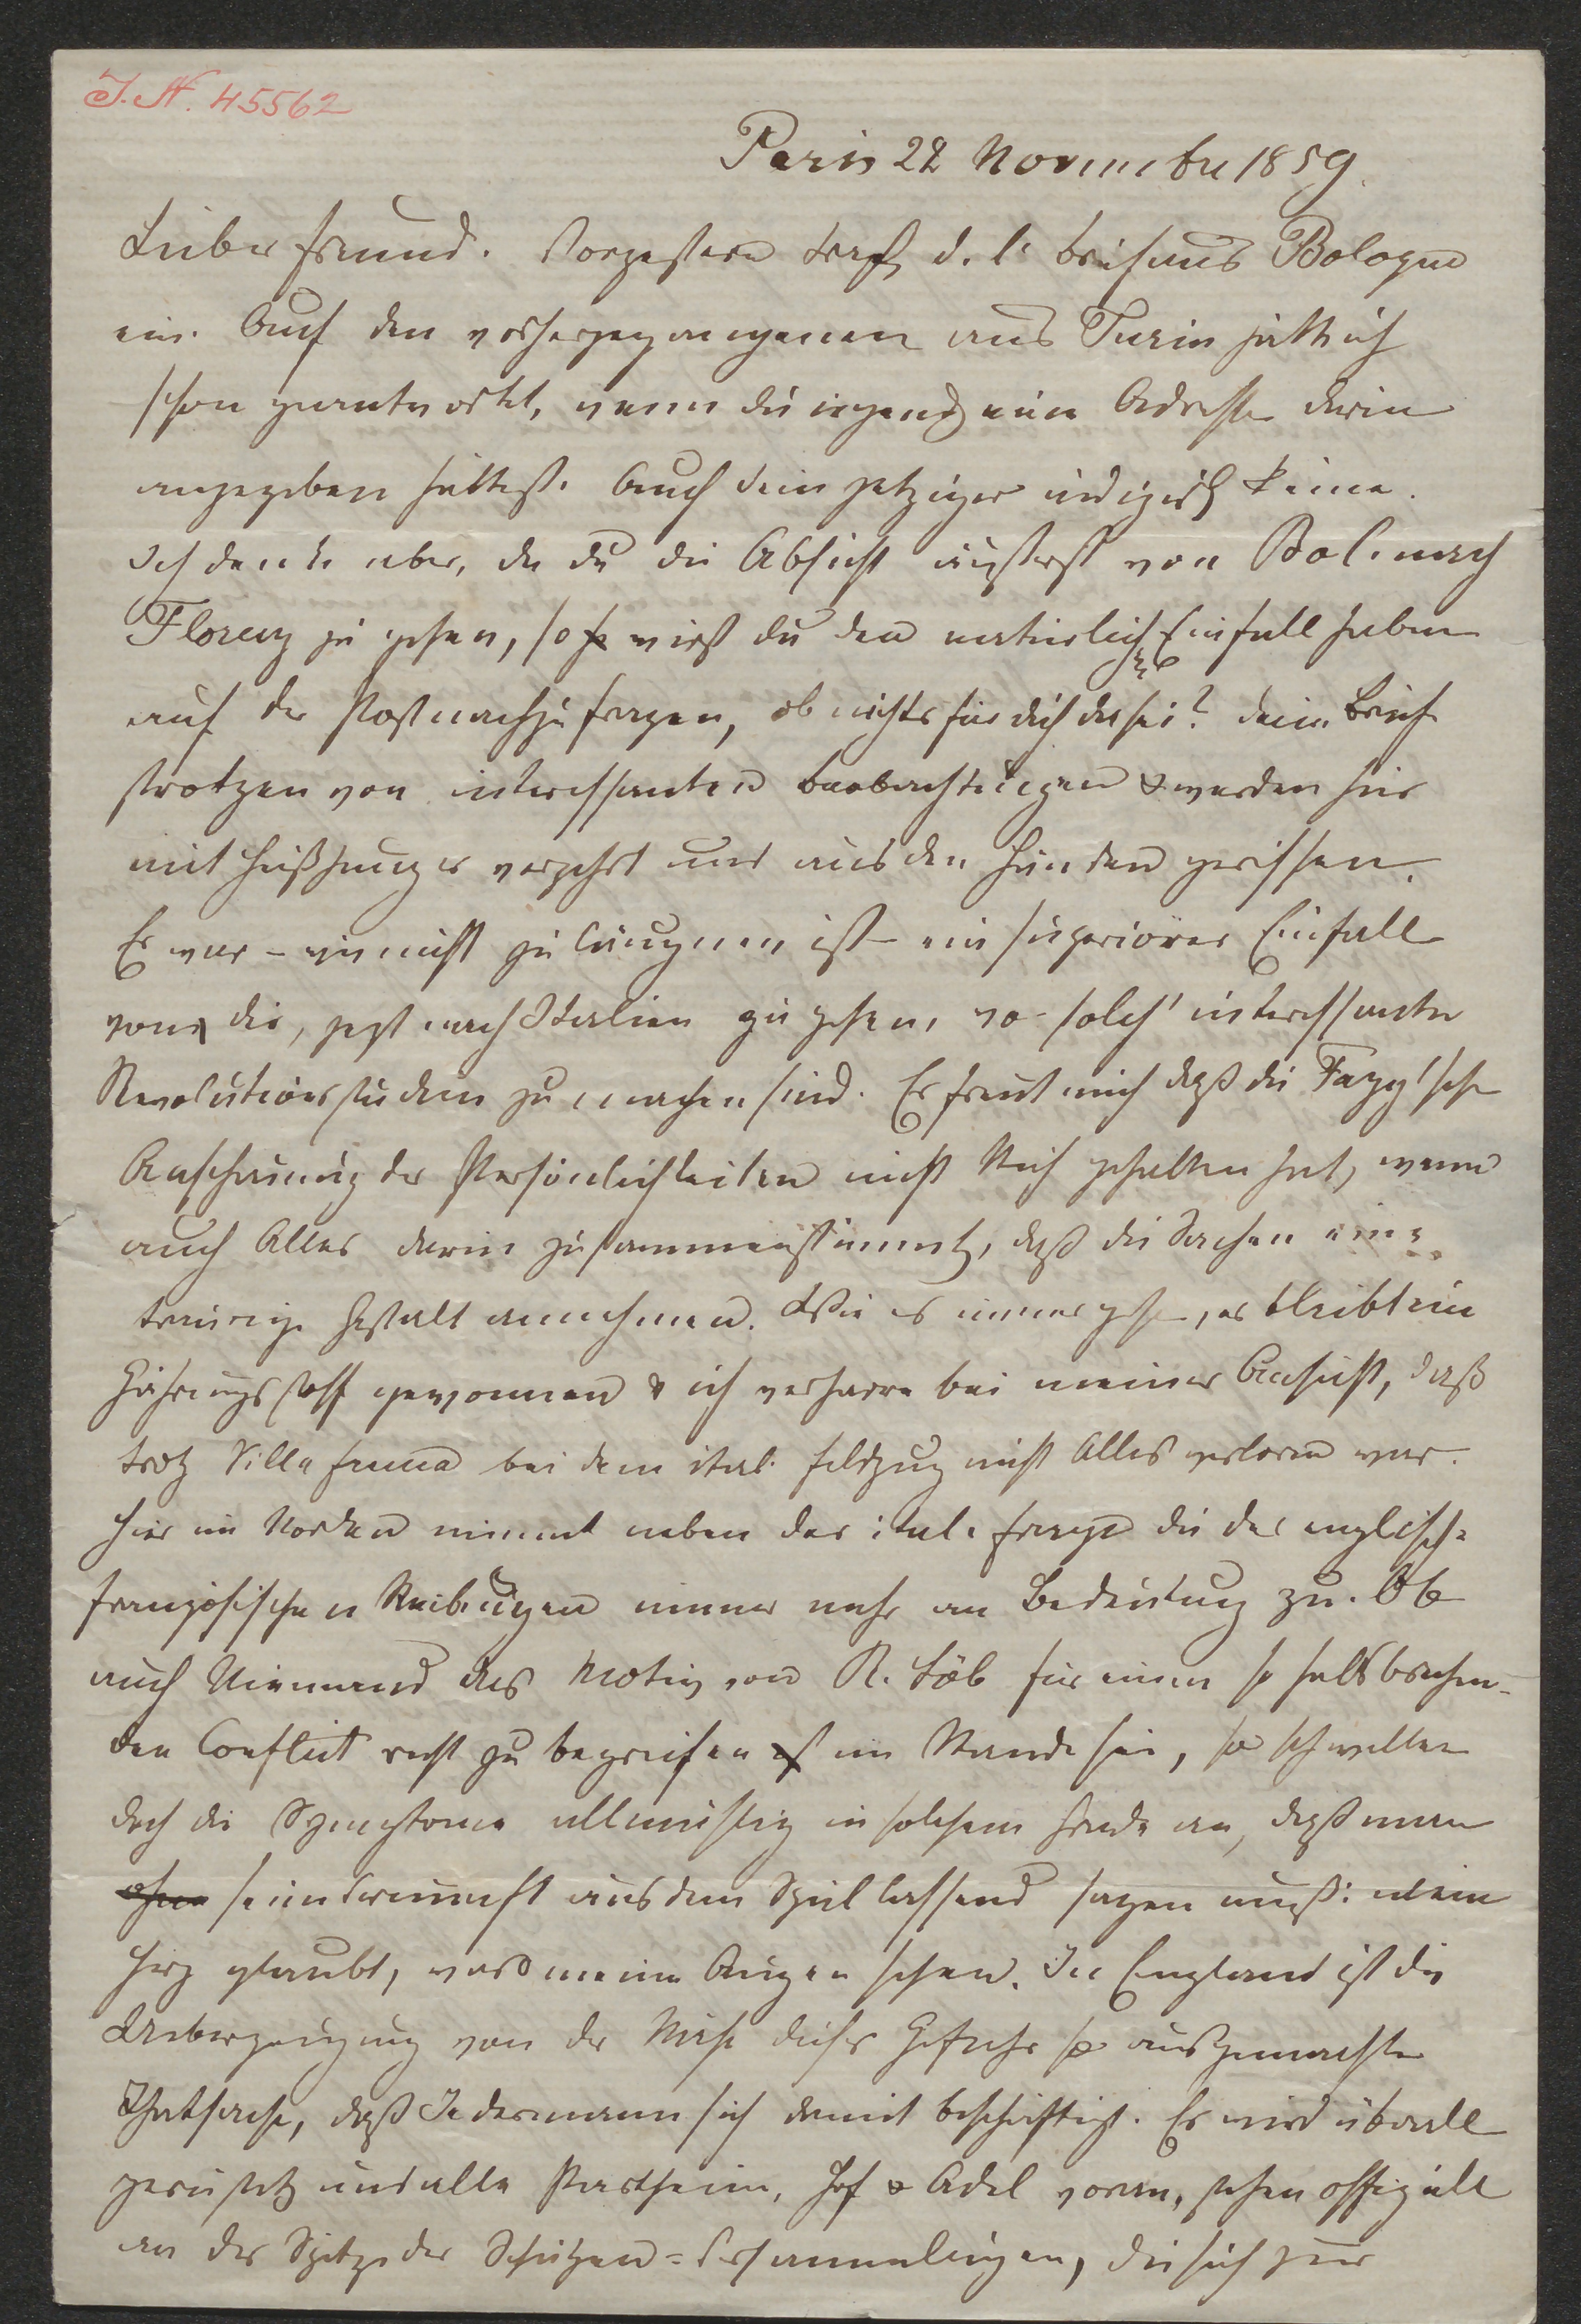 I. N. 45562
Paris 22 November 1859.
Lieber Freund. Vorgestern traf d. l. Brief aus Bologna
ein. Auf den vorhergegangenen aus Turin hätt ich
schon geantwortet, wenn du irgend eine Adresse darin
angegeben hättest. Auch dein jetziger indizirt keine.
Ich denke aber, da du die Absicht äußerst von Bol. nach
Florenz zu gehen, so wirst du den natürlichen Einfall haben
auf der Post nachzufragen, ob nichts für dich da sei? deine Briefe
strotzen von interessanten Beobachtungen & werden hier
mit Heißhunger verzehrt und aus den Händen gerissen.
Es war – wie nicht zu läugnen ist – ein superiörer Einfall
von dir, jezt nach Italien zu gehen, wo solch' interessante
Revolutionsstudien zu machen sind. Es freut mich daß die Fazy'sche
Anschauung der Persönlichkeiten nicht Stich gehalten hat, wenn
auch Alles darin zusammenstimmt, daß die Sachen eine
traurige Gestalt annehmen. Wie es immer gehe, es bleibt ein
Gährungsstoff gewonnen & ich verharre bei meiner Ansicht, daß
trotz Villafranca bei dem ital. Feldzug nicht Alles verloren war.
Hier im Norden nimmt neben der ital. Frage die der englisch-
französischen Reibungen immer mehr an Bedeutung zu. Ob
auch Niemand das Motiv von R. Löb für einen so halsbrechen-
den Conflict recht zu begreifen im Stande sei, so schwellen
doch die Symptome allmählig in solchem Grade an, daß man
seine Vernunft aus dem Spiel lassend sagen muß: mein
Herz glaubt, was meine Augen sehen. In England ist die
Ueberzeugung von der Nähe dieser Gefahr so ausgemachte
Thatsache, daß Jedermann sich damit beschäftigt. Es wird überall
gerüstet und alle Partheien, Hof & Adel voran, stehen offiziell
an der Spitze der Schützen-Versammlungen, die sich zur